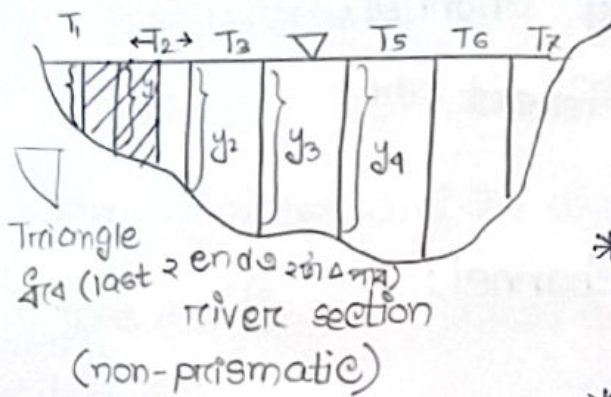 T₁ T₂ T₃ T₅ T₆ T₇
y y₂ y₃ y₄
Triangle
ধরব (last 2 end এ ২টা Δ পাব)
river section
(non-prismatic)